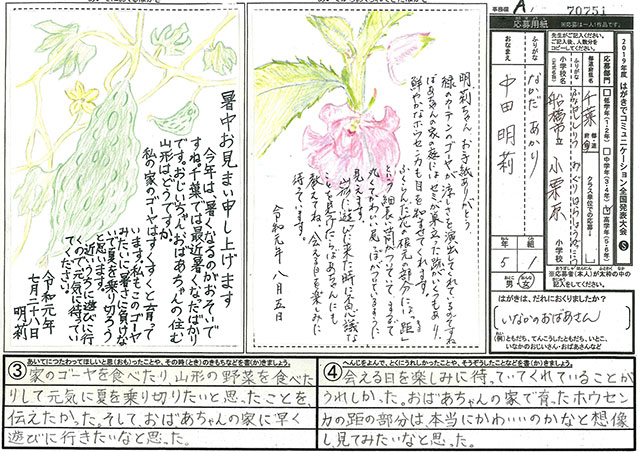 暑中お見まい申し上げます
今年は、暑くなるのがおそいで
すね。千葉では最近暑くなったばかり
です。おじいちゃん、おばあちゃんの住む
山形は、どうですか。
私の家のゴーヤはすくすくと育って
います。私もこのゴーヤ
みたいに暑さに負けな
いで夏を乗り切ろう
と思います。
近いうちに遊びに行
くので元気に待ってい
てください。
令和元年
七月二十八日
明莉
明莉ちゃん お手紙ありがとう
緑のカーテンのゴーヤが涼しさを演出してくれているのですね
ばあちゃんの家の庭にはセミが巣立った跡がいくつもあり、
鮮やかなホウセンカも目を和ませてくれます。
ふくらんだ花の根元部分には、「距」
という細長い管がついていて、まるで
丸くてかわいい尾っぽのようで
見えます。
山形に遊びに来た時に、不思議な
ことを見つけたらばあちゃんにも
教えてね。会える日を楽しみに
待っています。
令和元年 八月五日
事務欄 A 70751
応募用紙
※応募は一人1作品です。
先生がご記入ください。
ご記入後、人数分を
コピーしてください。
2019年度 はがきでコミュニケーション全国発表大会 S
応募部門
低学年(1・2年)
中学年(3・4年)
高学年(5・6年)
都道府県名
千葉 都・道 府・県
クラス単位での応募
ふりがな
小学校名
船橋市立 小栗原 小学校
ふりがな
なかだ あかり
おなまえ
中田 明莉
年 5
組 1
男 女
※応募者(本人)が太わくの中の
はがきは、だれにおくりましたか?
いなかのおばあさん
(例)ともだち、てんこうしたともだち、いとこ、
いなかのおじいさん・おばあさんなど
③ あいてにつたわってほしいと思(おも)ったことや、その時(とき)のきもちなどを書(か)きましょう。
家のゴーヤを食べたり、山形の野菜を食べた
りして元気に夏を乗り切りたいと思ったことを、
伝えたかった。そして、おばあちゃんの家に早く
遊びに行きたいなと思った。
④ へんじをよんで、とくにうれしかったことや、そうぞうしたことなどを書(か)きましょう。
会える日を楽しみに待っていてくれていることが
うれしかった。おばあちゃんの家で育ったホウセン
カの距の部分は、本当にかわいいのかなと想像
し、見てみたいなと思った。